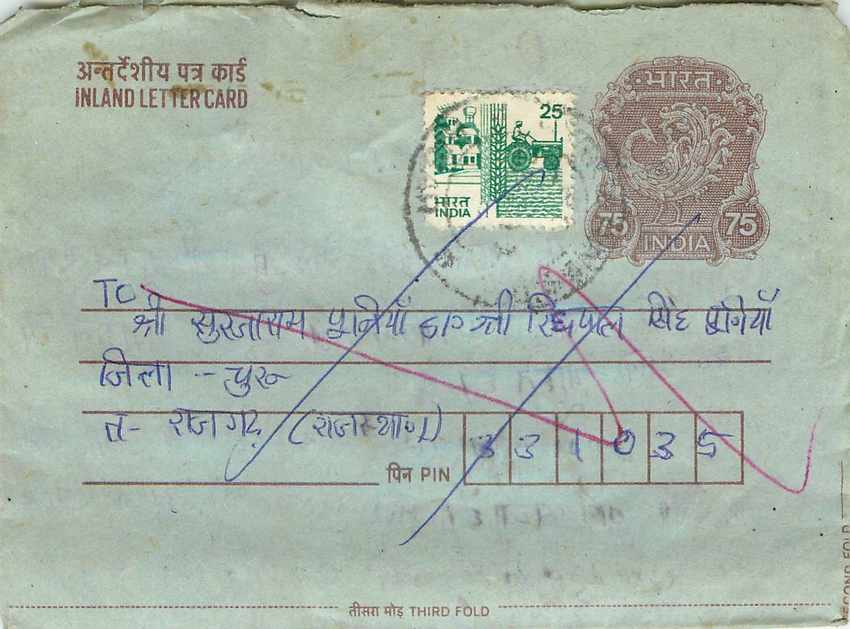 अन्तर्देशीय पत्र कार्ड
INLAND LETTER CARD
25
भारत
INDIA
भारत
75 75
INDIA
TO
श्री सुरजाराम पूनियाँ S/o श्री रिछपाल सिंह पूनियाँ
जिला - चुरू
त- राजगढ़ (राजस्थान)
331035
पिन PIN
तीसरा मोड़ THIRD FOLD
SECOND FOLD